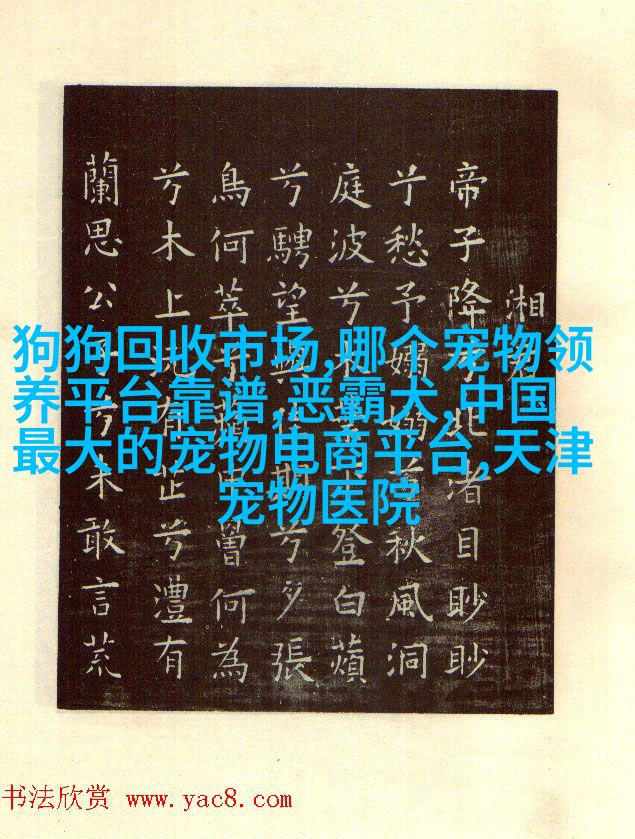 湘
帝子降兮北渚目眇眇
兮愁予嫋嫋兮秋風洞
庭波兮木下登白薠
兮騁望與佳期兮夕張
鳥何萃兮中罾何為
兮木上沅有芷兮澧有
蘭思公子兮未敢言荒
狗狗回收市场,哪个宠物领
养平台靠谱,恶霸犬,中国
最大的宠物电商平台,天津
宠物医院
书法欣赏 www.yac8.com